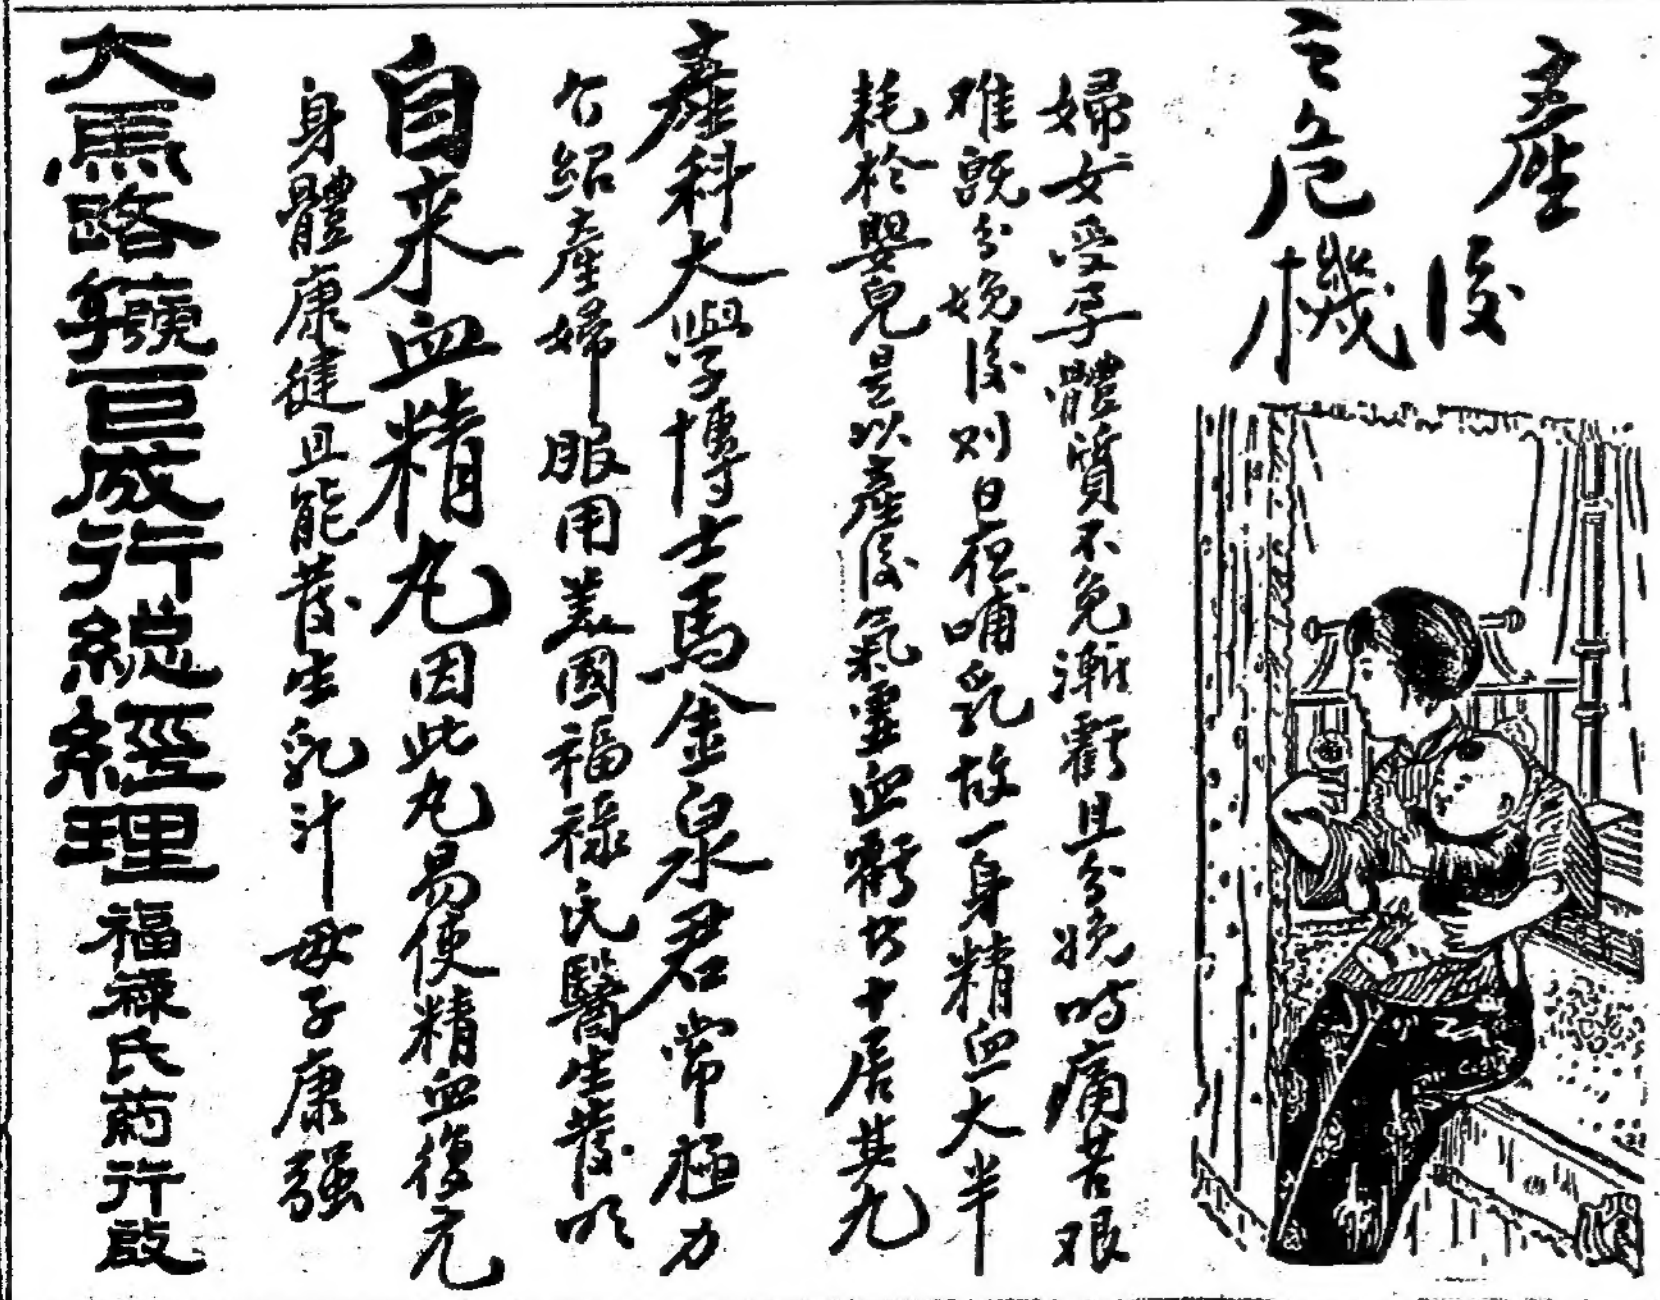 產後
之危機
婦女受孕體質不免漸虧且分娩時痛苦艰
难既分娩後则日夜哺乳故一身精血大半
耗於嬰兒是以產後氣虛血虧者十居其九
產科大學博士馬金泉君常極力
介紹產婦服用美國福祿氏醫生發明
自来血精丸因此丸易使精血復元
身體康健且能發生乳汁母子康强
大馬路巨成行總經理福祿氏葯行啟